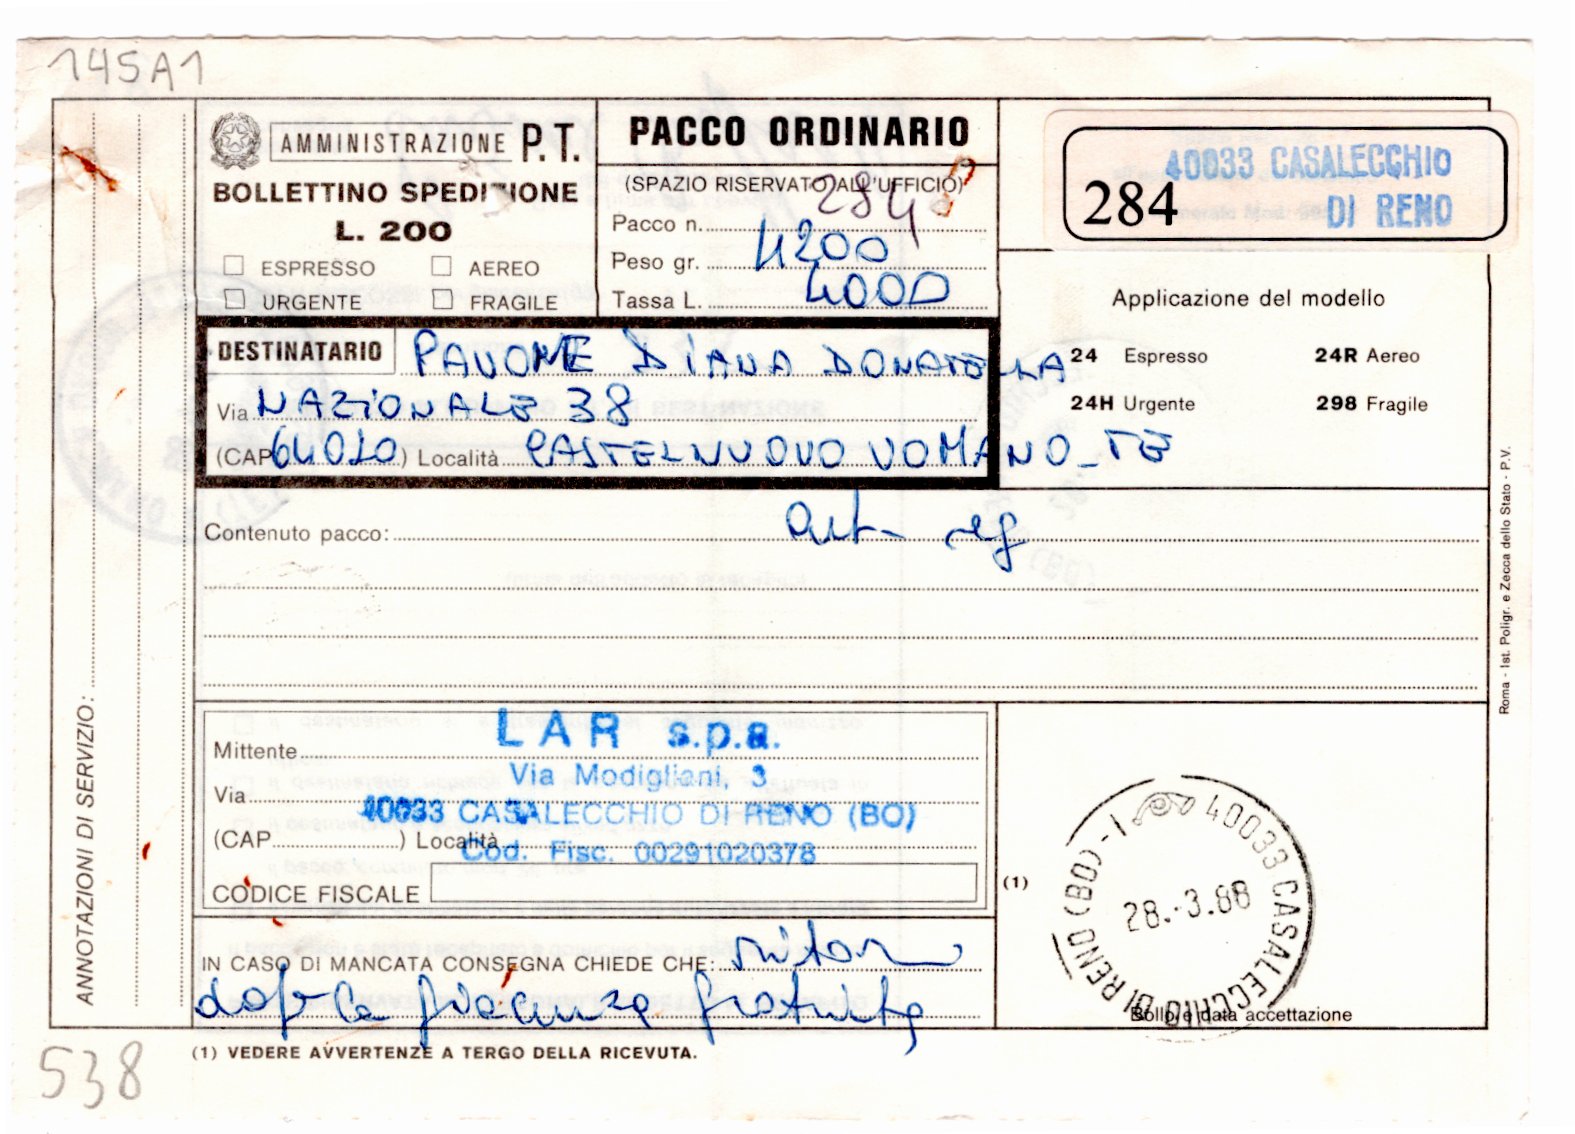 145A1
AMMINISTRAZIONE P.T.
BOLLETTINO SPEDIZIONE
L. 200
ESPRESSO AEREO
URGENTE FRAGILE
PACCO ORDINARIO
(SPAZIO RISERVATO ALL'UFFICIO)
Pacco n. 284
Peso gr. 4200
Tassa L. 4000
284 40033 CASALECCHIO
DI RENO
Applicazione del modello
24 Espresso 24R Aereo
24H Urgente 298 Fragile
DESTINATARIO PAVONE DIANA DONATELLA
Via NAZIONALE 38
(CAP 64020) Località CASTELNUOVO VOMANO_TE
Contenuto pacco: art. reg
Mittente LAR s.p.a.
Via Via Modigliani, 3
40033 CASALECCHIO DI RENO (BO)
(CAP ) Località
Cod. Fisc. 00291020378
CODICE FISCALE
IN CASO DI MANCATA CONSEGNA CHIEDE CHE: ritorno
dopo la giacenza gratuita
(1)
40033 CASALECCHIO DI RENO (BO) - 1
28.-3.88
Bollo e data accettazione
(1) VEDERE AVVERTENZE A TERGO DELLA RICEVUTA.
ANNOTAZIONI DI SERVIZIO:
Roma - Ist. Poligr. e Zecca dello Stato - P.V.
538